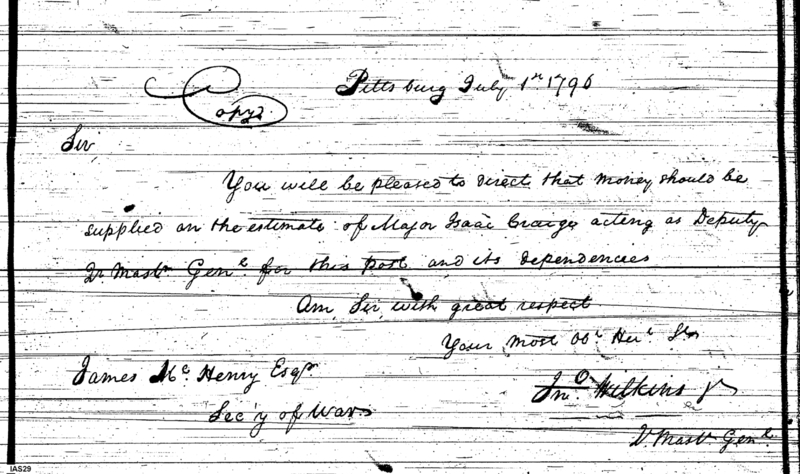 Pittsburg July 1st 1796
Copy
Sir
You will be pleased to direct that money should be
supplied on the estimate of Major Isaac Craig acting as Deputy
Qr Mastr Genl for this post and its dependencies
Am, Sir, with great respect
Your most Obt Hue St
James Mc Henry Esqr
Sec'y of War
Jno Wilkins Jr
Qr Mastr Genl
IAS29